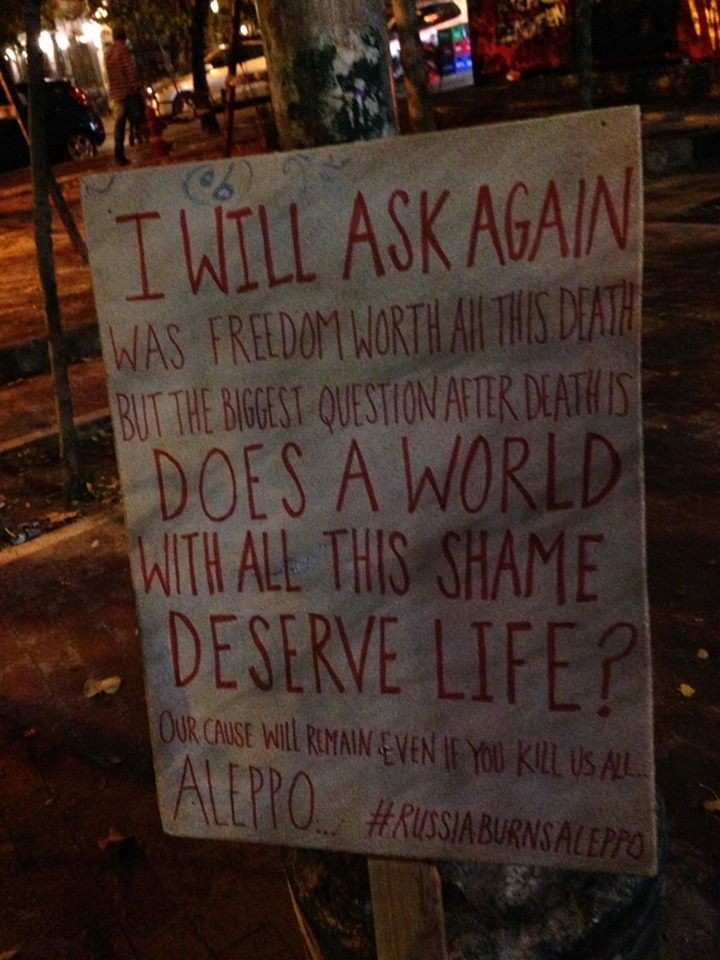 I WILL ASK AGAIN
WAS FREEDOM WORTH All THIS DEATH
BUT THE BIGGEST QUESTION AFTER DEATH IS
DOES A WORLD
WITH ALL THIS SHAME
DESERVE LIFE?
OUR CAUSE WILL REMAIN EVEN IF YOU KILL US ALL..
ALEPPO... #RUSSIABURNSALEPPO